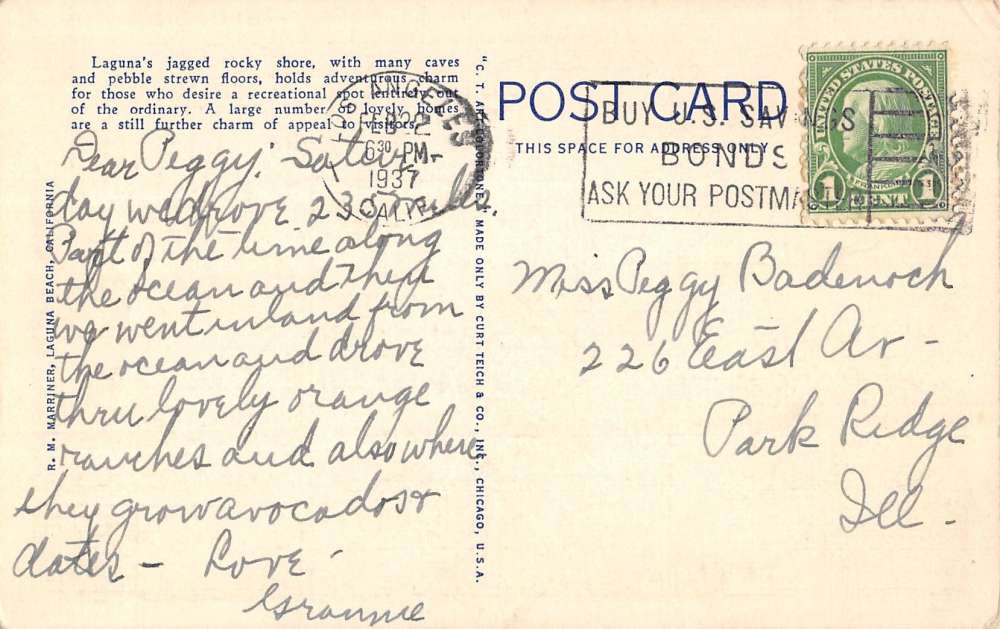 Laguna's jagged rocky shore, with many caves
and pebble strewn floors, holds adventurous charm
for those who desire a recreational spot entirely out
of the ordinary. A large number of lovely homes
are a still further charm of appeal to visitors.
LOS ANGELES
FEB 22
6 30 PM
1937
CALIF.
Dear Peggy: Satur
day we drove 230 miles.
Part of the time along
the ocean and then
we went inland from
the ocean and drove
thru lovely orange
ranches and also where
they grow avocados &
dates - Love -
Grannie
R. M. MARRINER, LAGUNA BEACH, CALIFORNIA
"C. T. ART-COLORTONE" MADE ONLY BY CURT TEICH & CO., INC., CHICAGO, U.S.A.
POST CARD
THIS SPACE FOR ADDRESS ONLY
BUY U.S. SAVINGS
BONDS
ASK YOUR POSTMASTER
UNITED STATES POSTAGE
FRANKLIN
1 CENT 1
Miss Peggy Badenoch
226 East Av -
Park Ridge
Ill -